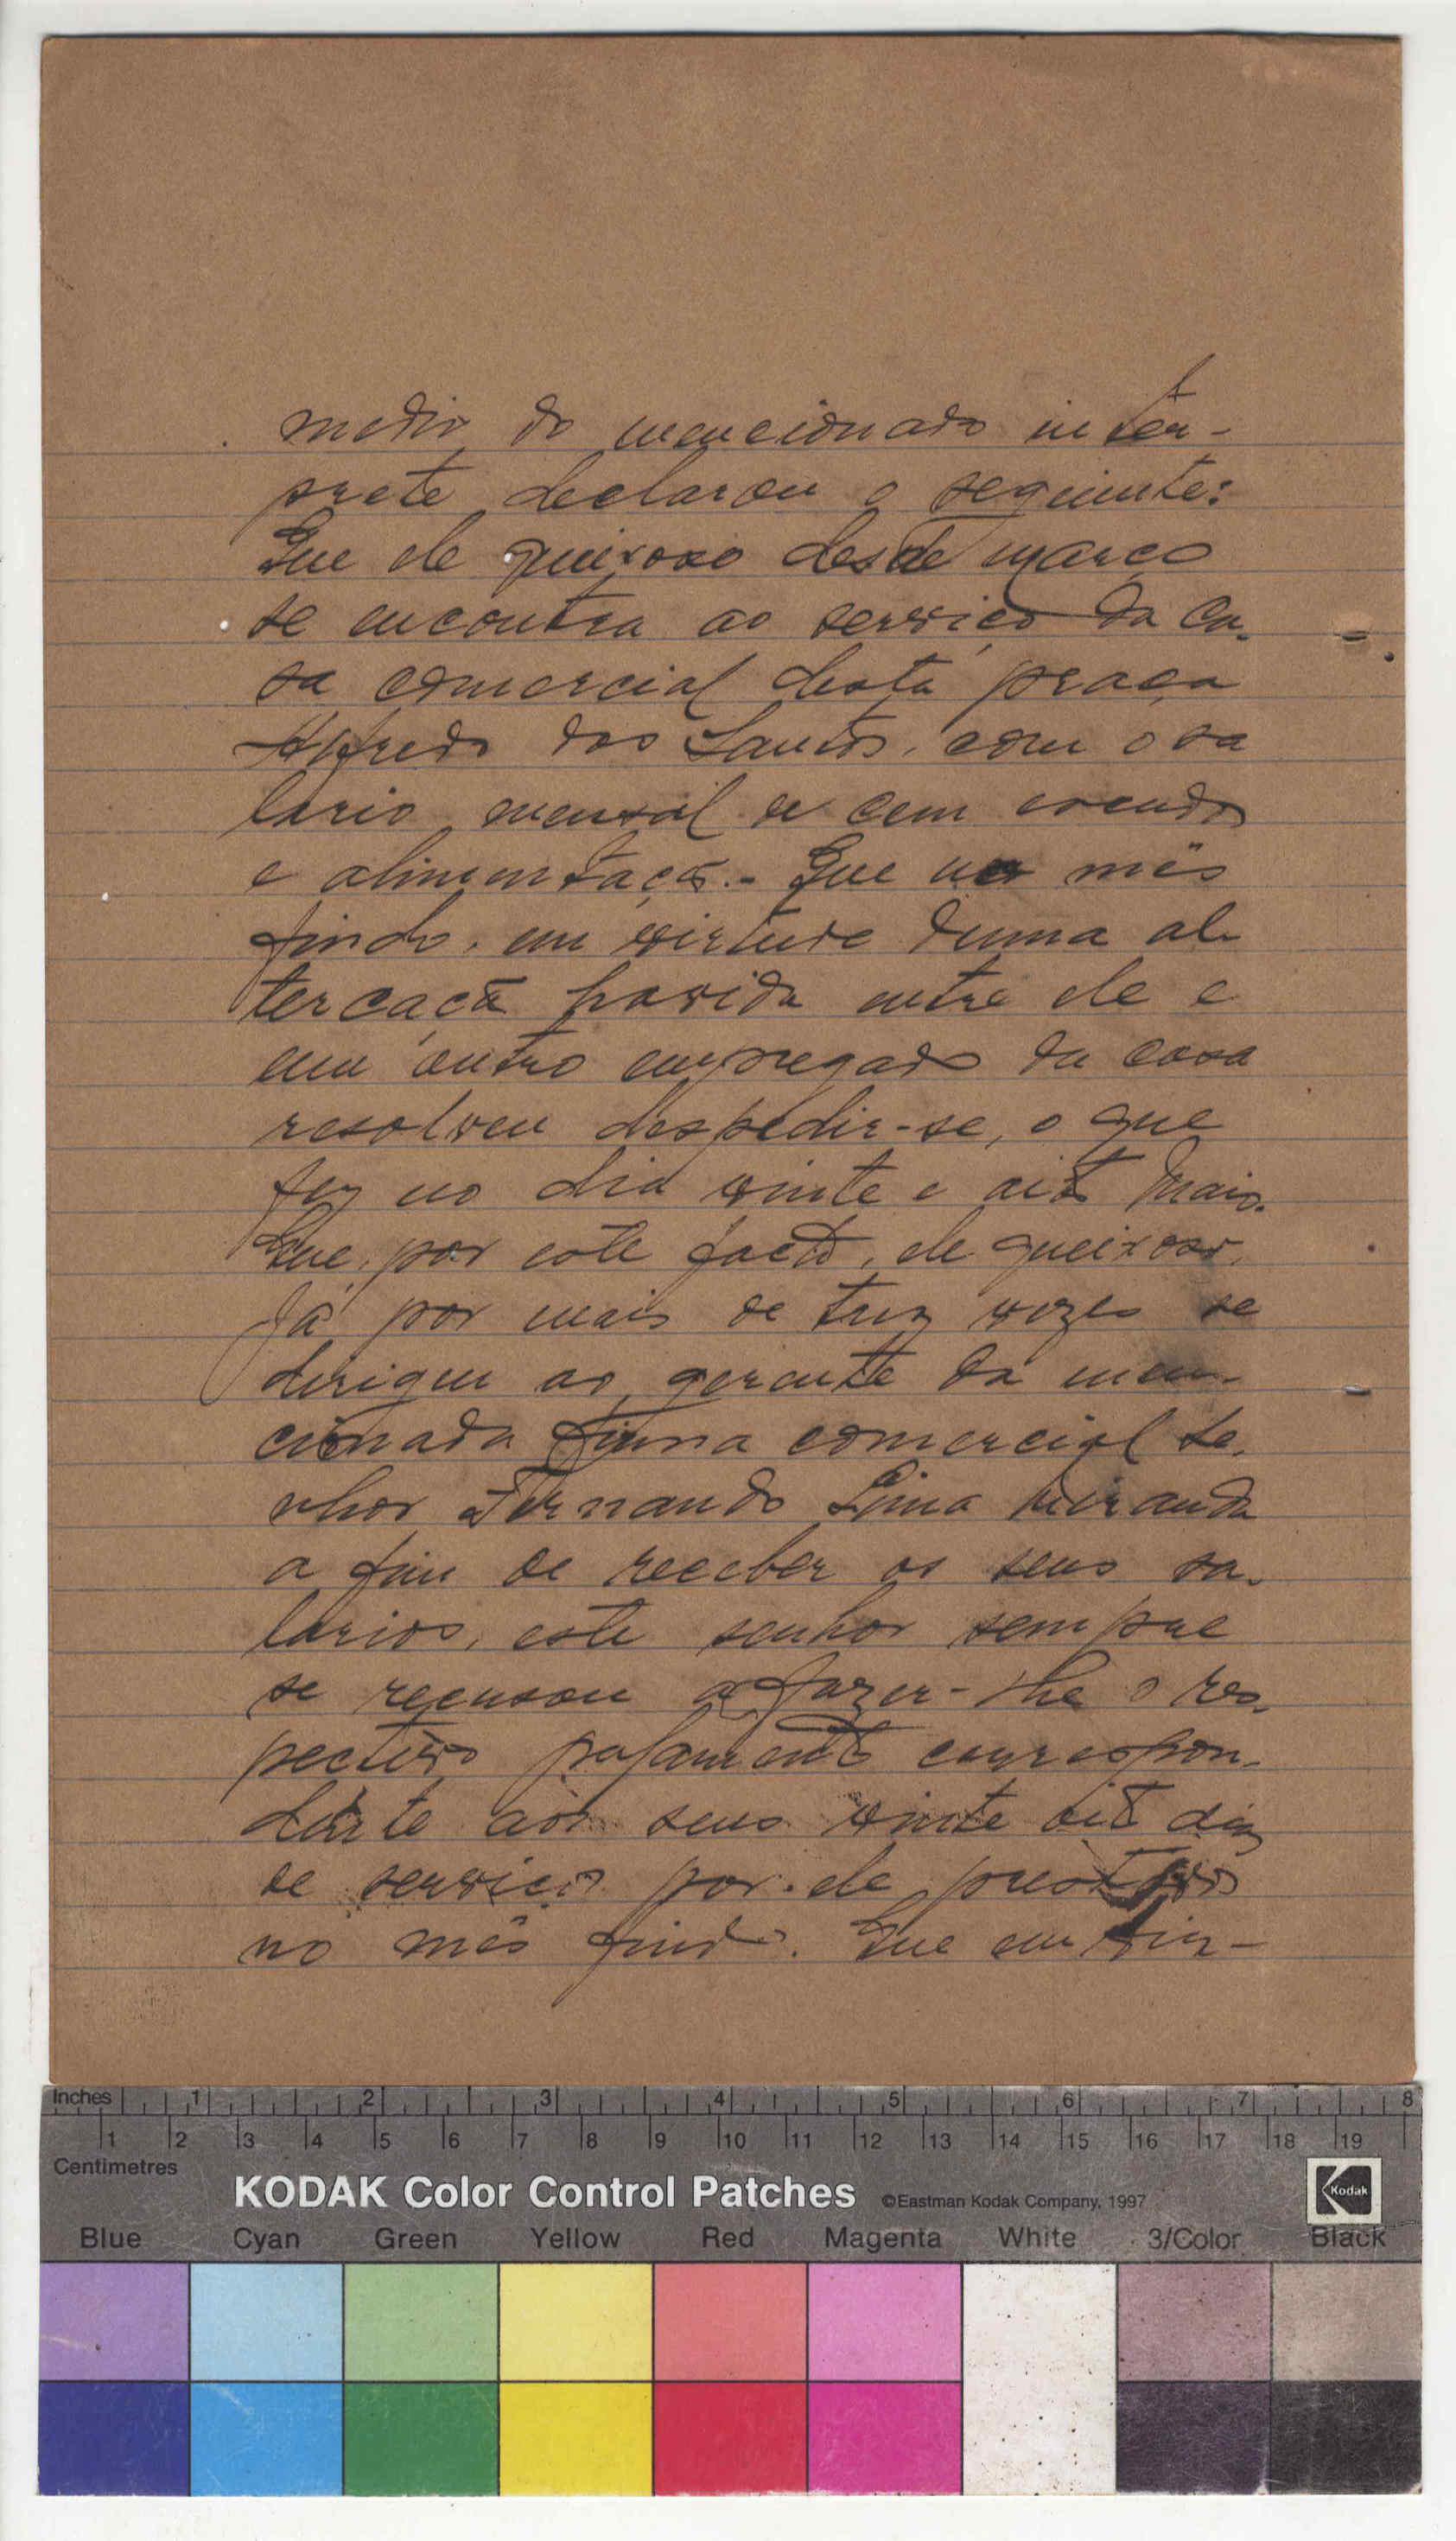 medio do mencionado inter-
prete declarou o seguinte:
Que ele queixoso desde março
se encontra ao serviço da ca-
sa comercial desta praça
Alfredo dos Santos, com o sa
lario mensal de cem escudos
e alimentação.- Que no mês
findo, em virtude duma al-
tercação havida entre ele e
um outro empregado da casa
resolveu despedir-se, o que
fez no dia vinte e oito Maio.
Que, por este facto, ele queixoso,
já por mais de trez vezes se
dirigiu ao gerente da men-
cionada firma comercial Se-
nhor Fernando Lima Miranda
a fim de receber os seus sa-
larios, este senhor sempre
se recusou a fazer-lhe o res-
pectivo pagamento correspon-
dente aos seus vinte oito dias
de serviços por ele prestados
no mês findo. Que em
Inches 1 2 3 4 5 6 7 8
1 2 3 4 5 6 7 8 9 10 11 12 13 14 15 16 17 18 19
Centimetres
KODAK Color Control Patches ©Eastman Kodak Company, 1997 Kodak
Blue Cyan Green Yellow Red Magenta White 3/Color Black